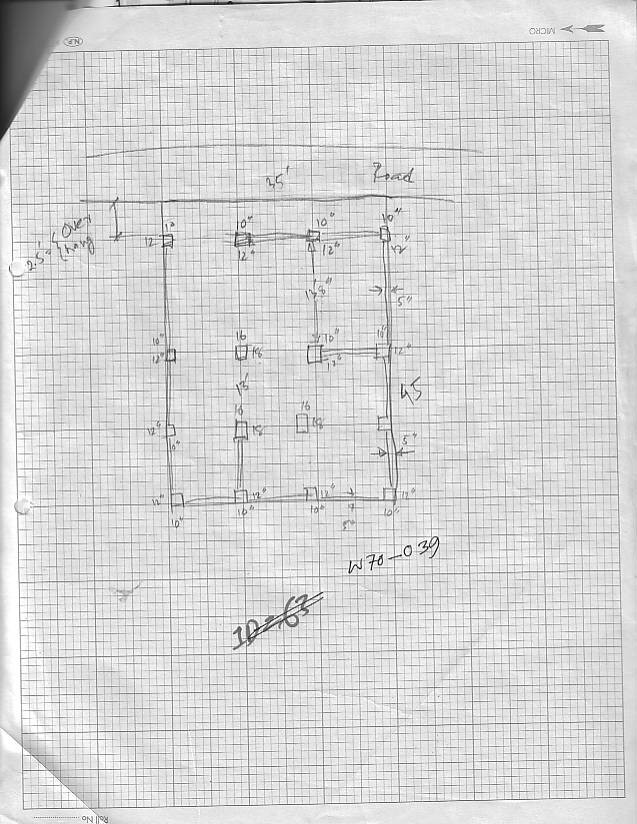 N.P.
MICRO
35'
Road
2.5'
Over
hang
10"
12
10"
12"
10"
12"
10"
12"
13'8"
5"
10"
12"
16
18
10"
12"
10"
12"
13'
45
16
18
16
18
12"
10"
5"
12"
10"
12"
10"
12"
10"
5"
12"
10"
W70-039
ID=63
Roll No